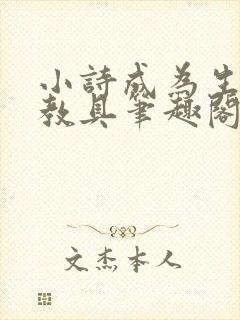 小詩成為生
教具筆趣閣
文杰本人